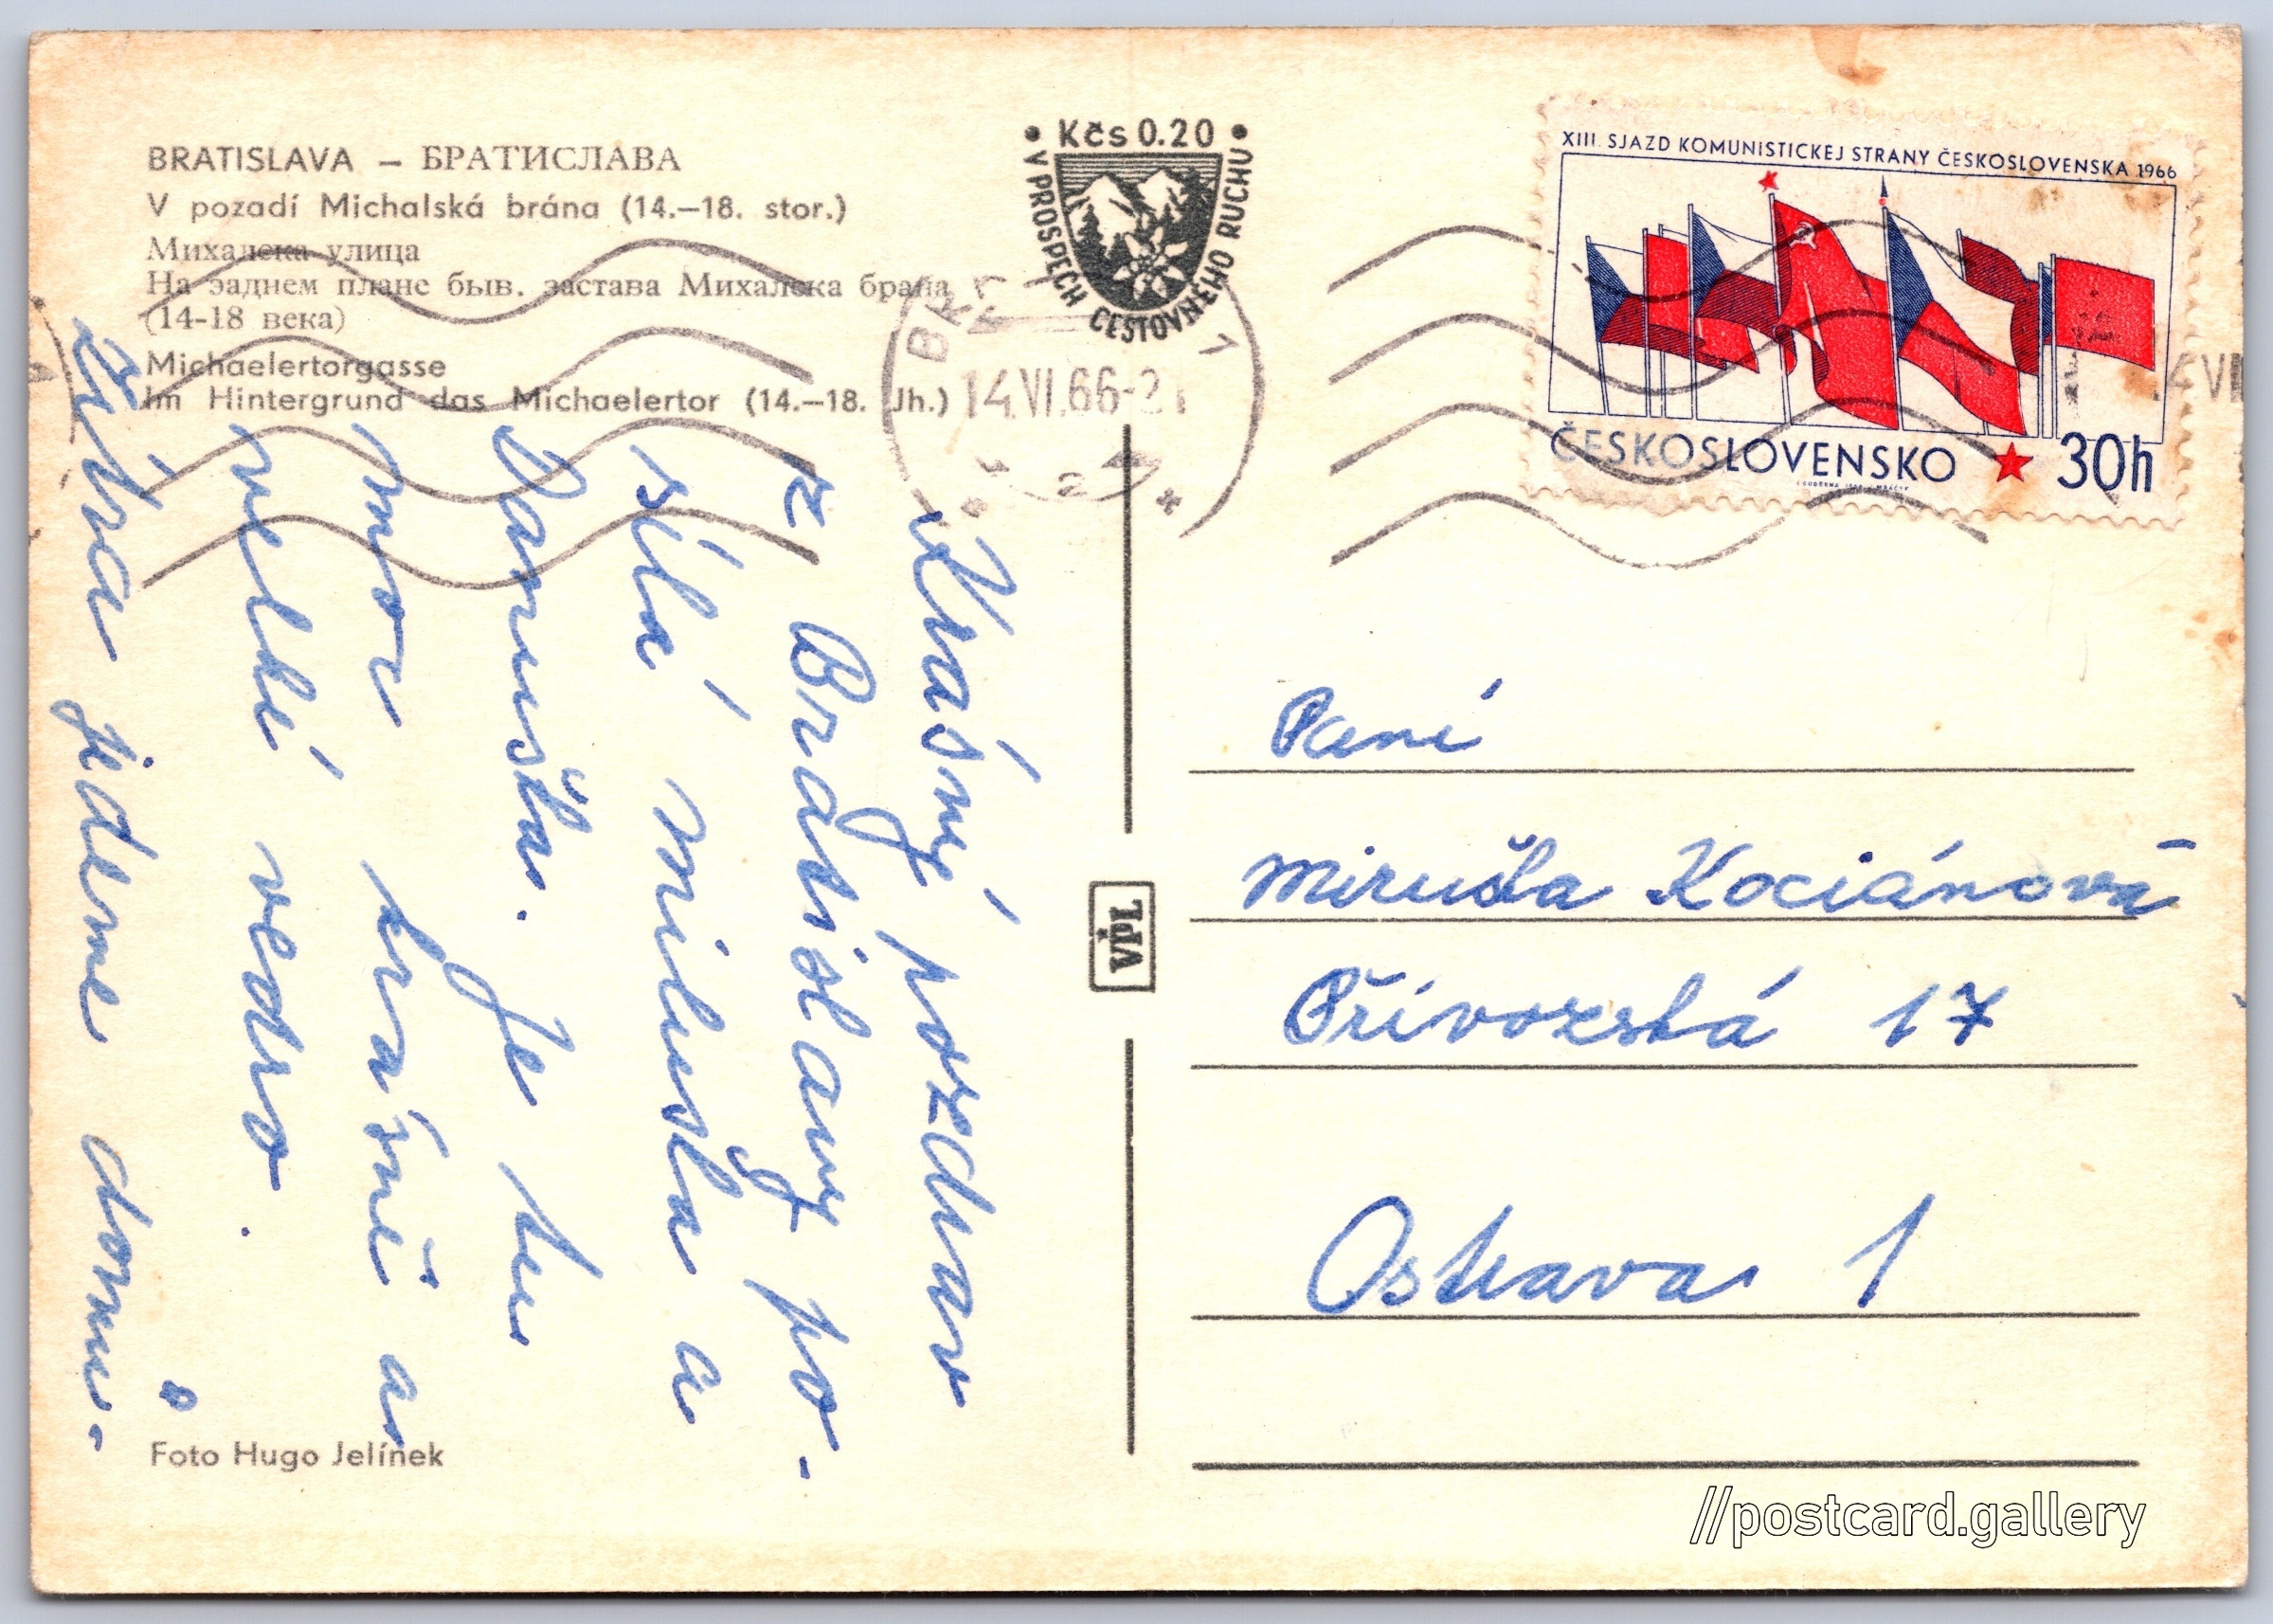 BRATISLAVA – БРАТИСЛАВА
V pozadí Michalská brána (14.–18. stor.)
Михалска улица
На заднем плане быв. застава Михалска брана
(14-18 века)
Michaelertorgasse
Im Hintergrund das Michaelertor (14.–18. Jh.)
• Kčs 0.20 •
V PROSPECH CESTOVNÉHO RUCHU
14.VI.66-21
XIII. SJAZD KOMUNISTICKEJ STRANY ČESKOSLOVENSKA 1966
ČESKOSLOVENSKO 30h
Krásný pozdrav
z Bratislavy po-
sílá Miluška a
Daruška. Je tu
moc krásně a
velké vedro.
Zítra jedeme domů.
Paní
Miruška Kociánová
Přívozská 17
Ostrava 1
VPL
Foto Hugo Jelínek
//postcard.gallery